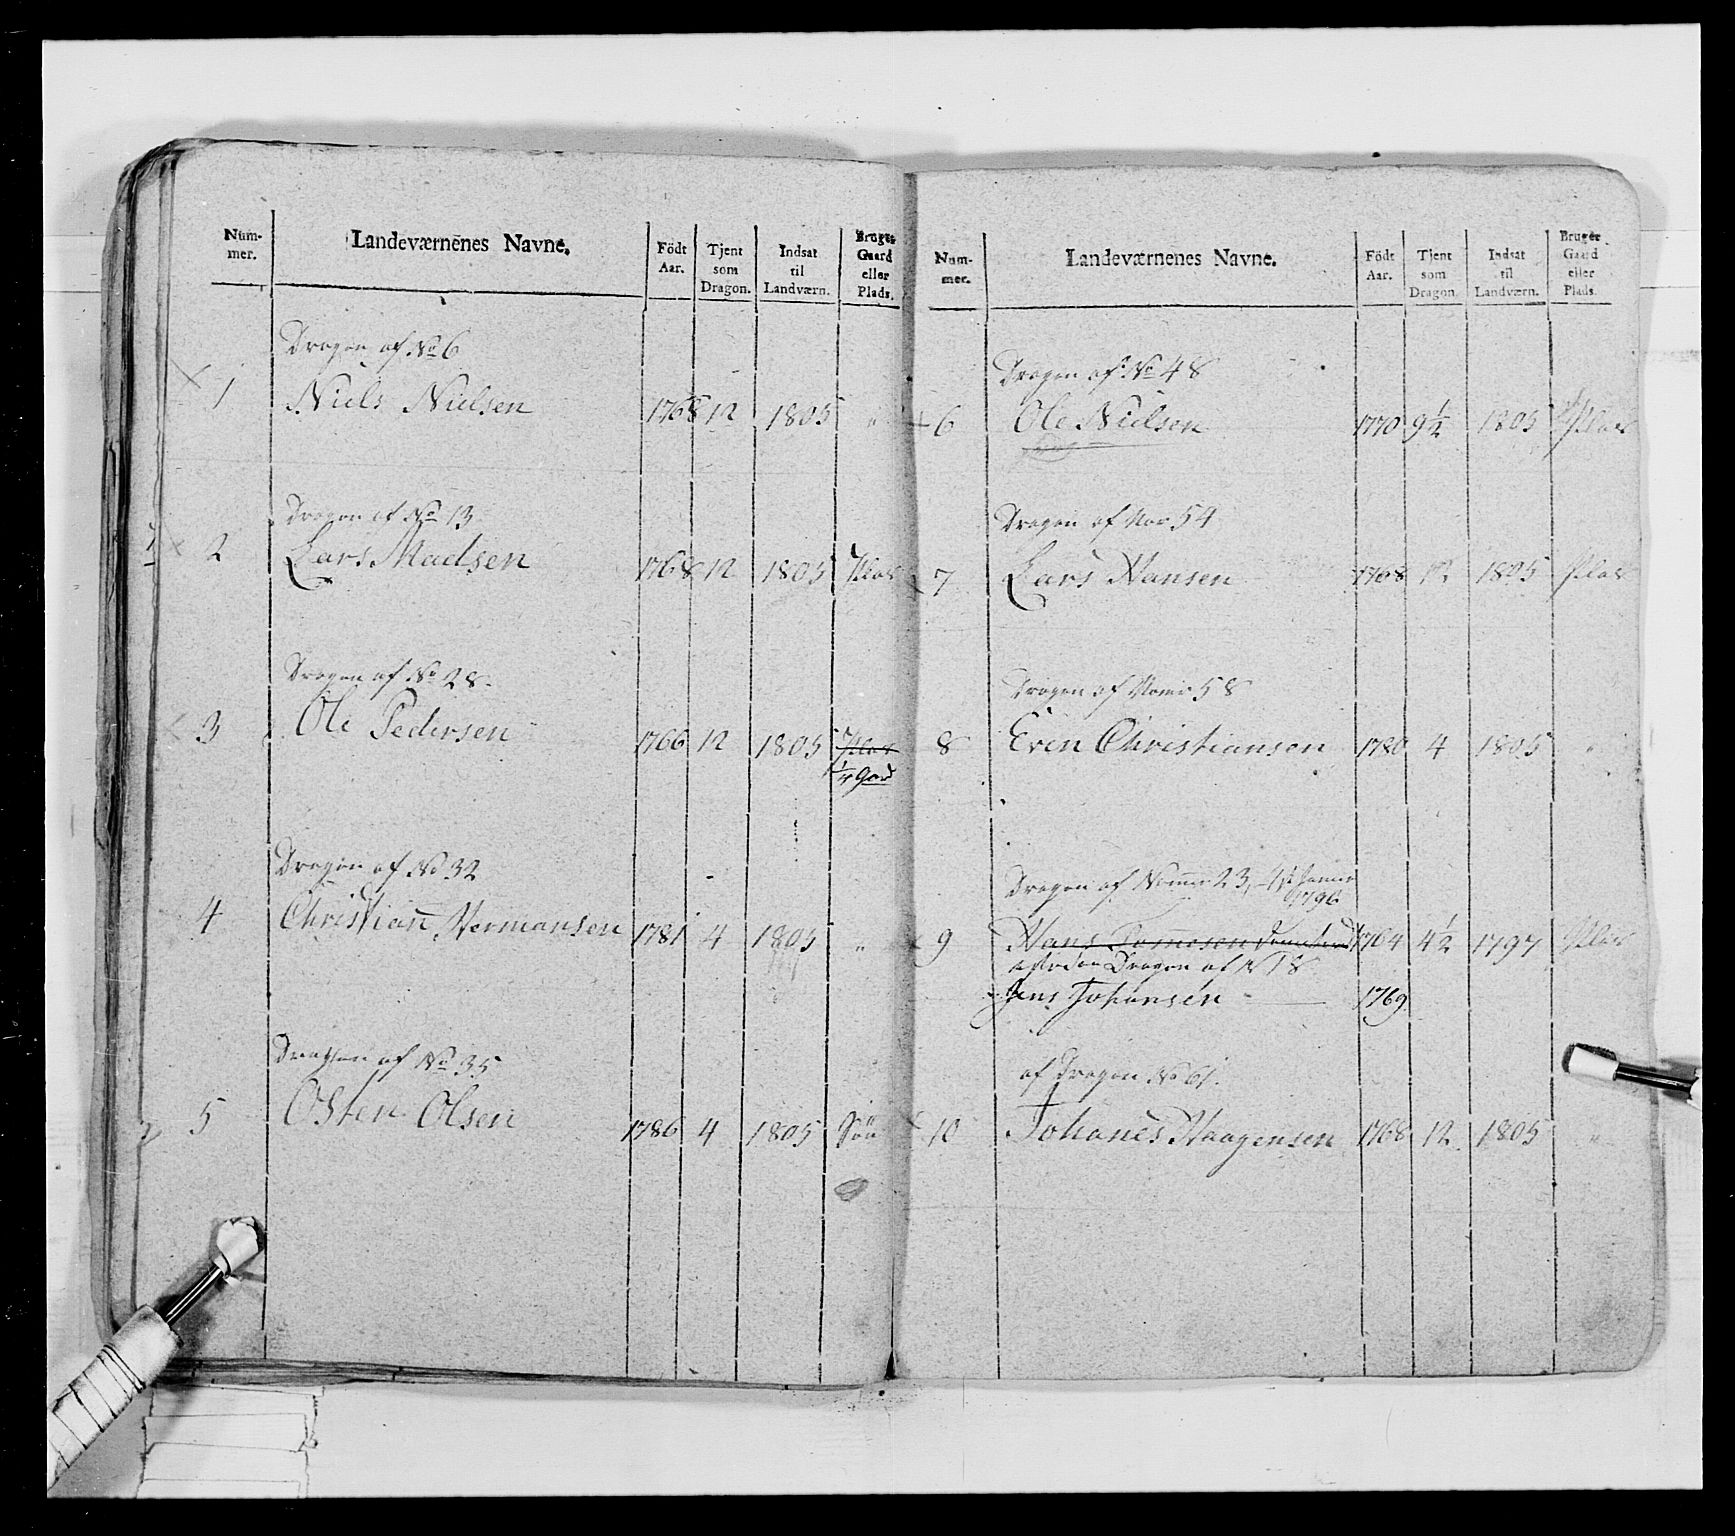 Num-mer. Landeværnenes Navne. Födt Aar. Tjent som Dragon. Indsat til Landværn. Bruger Gaard eller Plads.
Dragon af No 6
1 Niels Nielsen 1768 12 1805 "
Dragon af No 13
2 Lars Madsen 1768 12 1805 Plas
Dragon af No 28
3 Ole Pedersen 1766 12 1805 Plas
1/4 Gard
Dragon af No 32
4 Christian Hermansen 1781 4 1805 "
Dragon af No 35
5 Osten Olsen 1786 4 1805
Num-mer. Landeværnenes Navne. Födt Aar. Tjent som Dragon. Indsat til Landværn. Bruger Gaard eller Plads.
Dragon af No 48
6 Ole Nielsen 1770 9 1/2 1805 Plas
Dragon af 54
7 Lars Hansen 1768 12 1805 Plas
Dragon af 58
8 Even Christiansen 1780 4 1805 "
Dragon af 23
1796
9 Hans 1764 4 1/2 1797 Plas
Dragon af N 18
Jens Johansen 1769
af Dragon No 61.
10 Johanes Haagensen 1768 12 1805 "